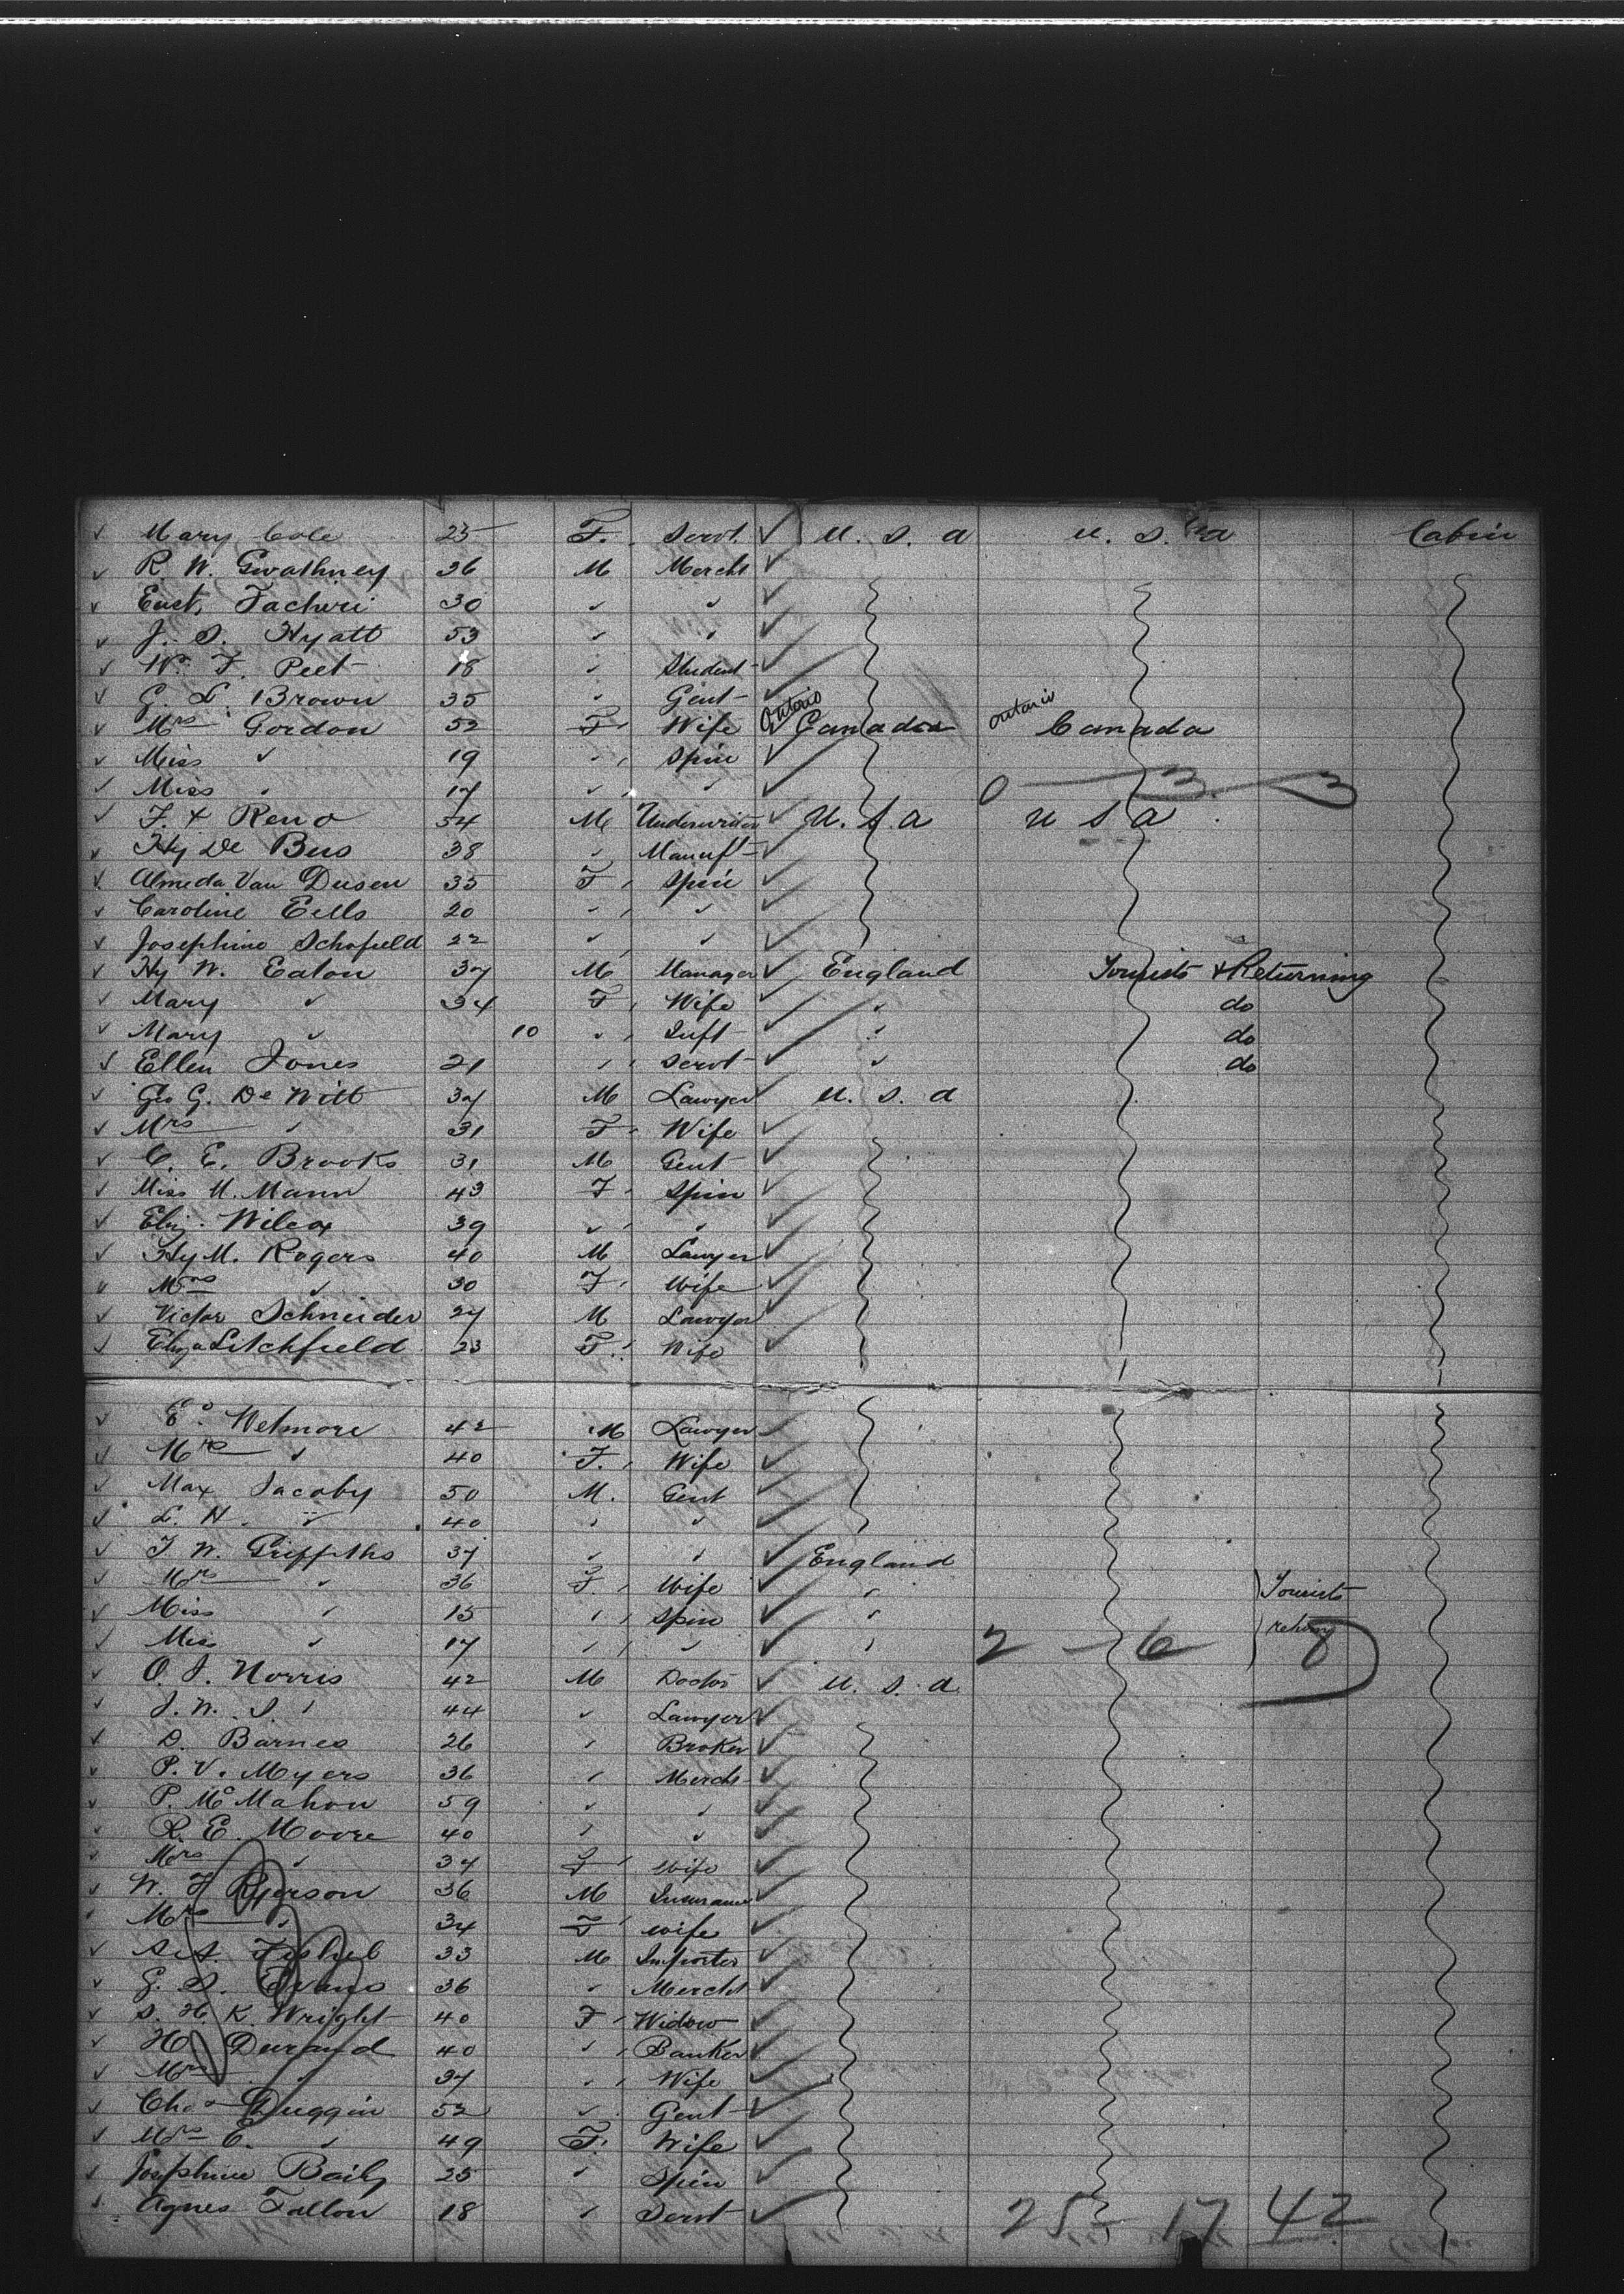 Mary Cole 25 F. Servt. U. S. A U. S. A Cabin
R. W. Gwathmey 36 M Mercht
Eust. Facheri 30 " "
J. S. Hyatt 53 " "
W. F. Peet 18 " Student
G. L. Brown 35 " Gent
Mrs Gordon 52 F Wife Ontario Canada Ontario Canada
Miss " 19 " Spin
Miss " 17 " " 0 — 3 3
F. X Reno 54 M Underwriter U. S. A U S A
Hy De Bus 38 " Manuft
Almeda Van Dusen 35 F Spin
Caroline Eells 20 " "
Josephine Schofield 22 " "
Hy W. Eaton 37 M Manager England Tourists & Returning
Mary " 34 F Wife " do
Mary " 10 " Inft " do
Ellen Jones 21 " Servt " do
Geo G. De Witt 37 M Lawyer U. S. A
Mrs " 31 F Wife
C. E. Brooks 31 M Gent
Miss M. Mann 43 F Spin
Eliz. Wilcox 39 " "
Hy M. Rogers 40 M Lawyer
Mrs " 30 F Wife
Victor Schneider 27 M Lawyer
Eliza Litchfield 23 F. Wife
E. Wetmore 42 M Lawyer
Mrs " 40 F. Wife
Max Jacoby 50 M. Gent
L. H. " 40 " "
T. W. Griffiths 37 " " England
Mrs " 36 F Wife " Tourists
Miss " 15 " Spin "
Miss " 17 " " " 2 — 6 8
O. J. Norris 42 M Doctor U. S. A
J. W. S. " 44 " Lawyer
D. Barnes 26 " Broker
P. V. Myers 36 " Mercht
P. McMahon 59 " "
R. E. Moore 40 " "
Mrs " 34 F Wife
W. H Ryerson 36 M Insurance
Mrs " 34 F wife
A. A. Fishel 33 M Importer
G. S. Evans 36 " Mercht
S. H. K. Wright 40 F Widow
H Durand 40 " Banker
Mrs " 37 " Wife
Chas Duggin 52 " Gent
Mrs C. " 49 F. Wife
Josephine Baily 25 " Spin
Agnes Fallon 18 " Servt 25 17 42